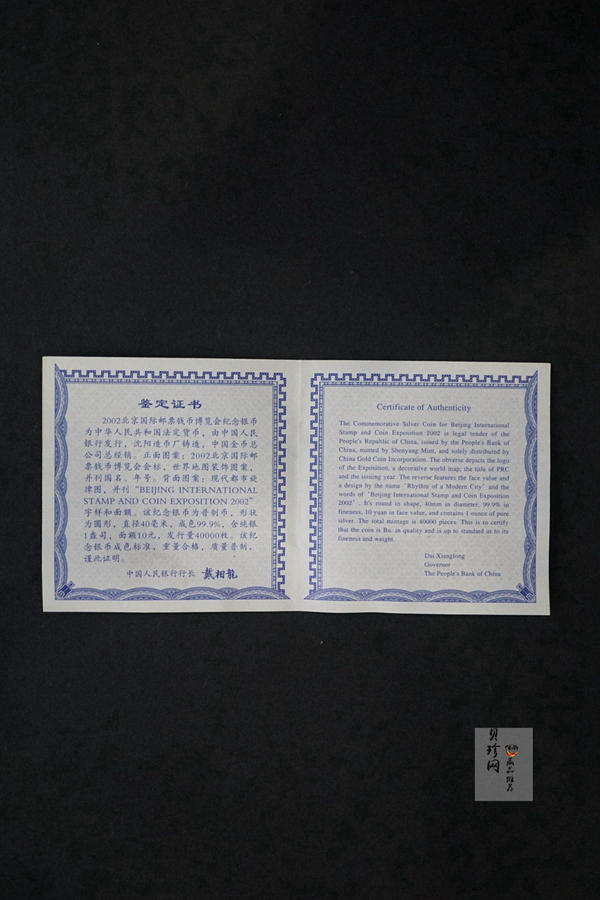 鉴定证书
2002北京国际邮票钱币博览会纪念银币
为中华人民共和国法定货币，由中国人民
银行发行，沈阳造币厂铸造，中国金币总
公司总经销。正面图案：2002北京国际邮
票钱币博览会会标，世界地图装饰图案，
并刊国名、年号。背面图案：现代都市旋
律图，并刊“BEIJING INTERNATIONAL
STAMP AND COIN EXPOSITION 2002”
字样和面额。该纪念银币为普制币，形状
为圆形，直径40毫米，成色99.9%，含纯银
1盎司，面额10元，发行量40000枚。该纪
念银币成色标准，重量合格，质量普制，
谨此证明。
中国人民银行行长 戴相龙
Certificate of Authenticity
The Commemorative Silver Coin for Beijing International
Stamp and Coin Exposition 2002 is legal tender of the
People's Republic of China, issued by the People's Bank of
China, minted by Shenyang Mint, and solely distributed by
China Gold Coin Incorporation. The obverse depicts the logo
of the Exposition, a decorative world map, the title of PRC
and the issuing year. The reverse features the face value and
a design by the name "Rhythm of a Modern City" and the
words of "Beijing International Stamp and Coin Exposition
2002". It's round in shape, 40mm in diameter, 99.9% in
fineness, 10 yuan in face value, and contains 1 ounce of pure
silver. The total mintage is 40000 pieces. This is to certify
that the coin is Bu. in quality and is up to standard as to its
fineness and weight.
Dai Xianglong
Governor
The People's Bank of China
贝珍网
藏品推荐